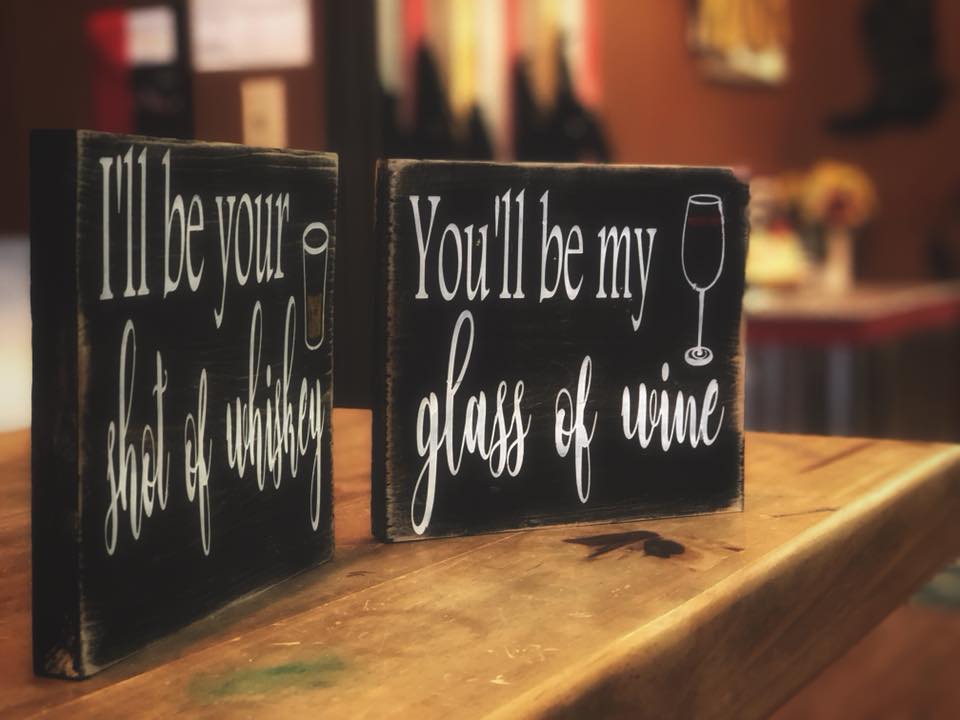 I'll be your
shot of whiskey
You'll be my
glass of wine